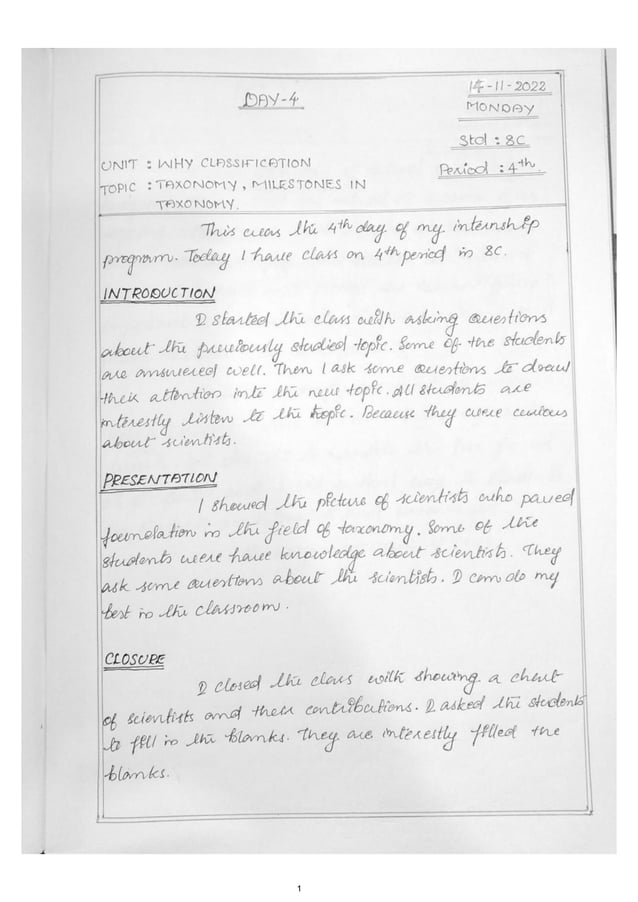 DAY-4
14-11-2022
MONDAY
Std : 8C
Period : 4th.
UNIT : WHY CLASSIFICATION
TOPIC : TAXONOMY, MILESTONES IN
TAXONOMY.
This was the 4th day of my internship
program. Today I have class on 4th period in 8C.
INTRODUCTION
I started the class with asking questions
about the previously studied topic. Some of the students
are answered well. Then I ask some questions to draw
their attention into the new topic. All students are
interestly listen to the topic. Because they were curious
about scientists.
PRESENTATION
I showed the picture of scientists who paved
foundation in the field of taxonomy. Some of the
students were have knowledge about scientists. They
ask some questions about the scientists. I can do my
best in the classroom.
CLOSURE
I closed the class with showing a chart
of scientists and their contributions. I asked the students
to fill in the blanks. They are interestly filled the
blanks.
1